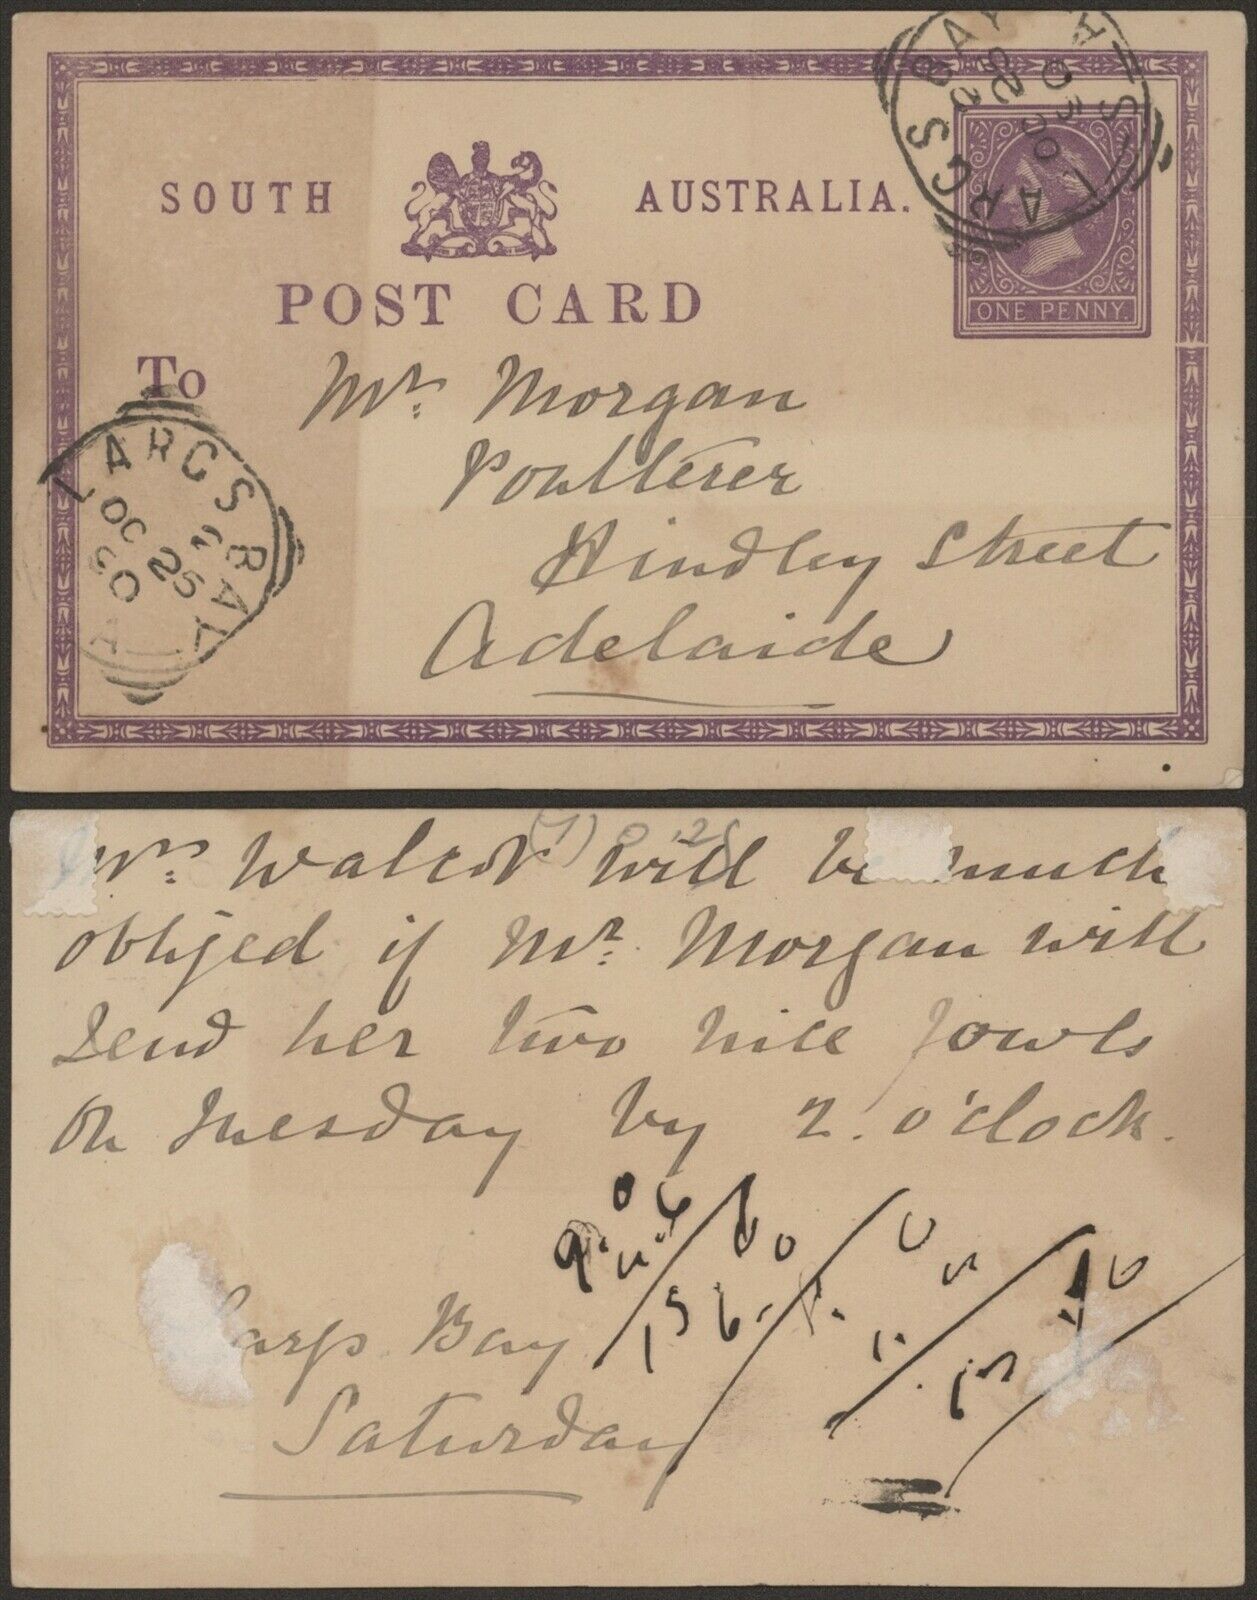 SOUTH AUSTRALIA.
POST CARD
ONE PENNY.
LARGS BAY
To
Mr. Morgan
Poulterer
Hindley Street
Adelaide
LARGS BAY
2
OC 25
90
S.A
Mrs. will be much
obliged if Mr. Morgan will
Send her two nice fowls
on Tuesday by 2. o'clock.
Largs Bay
Saturday